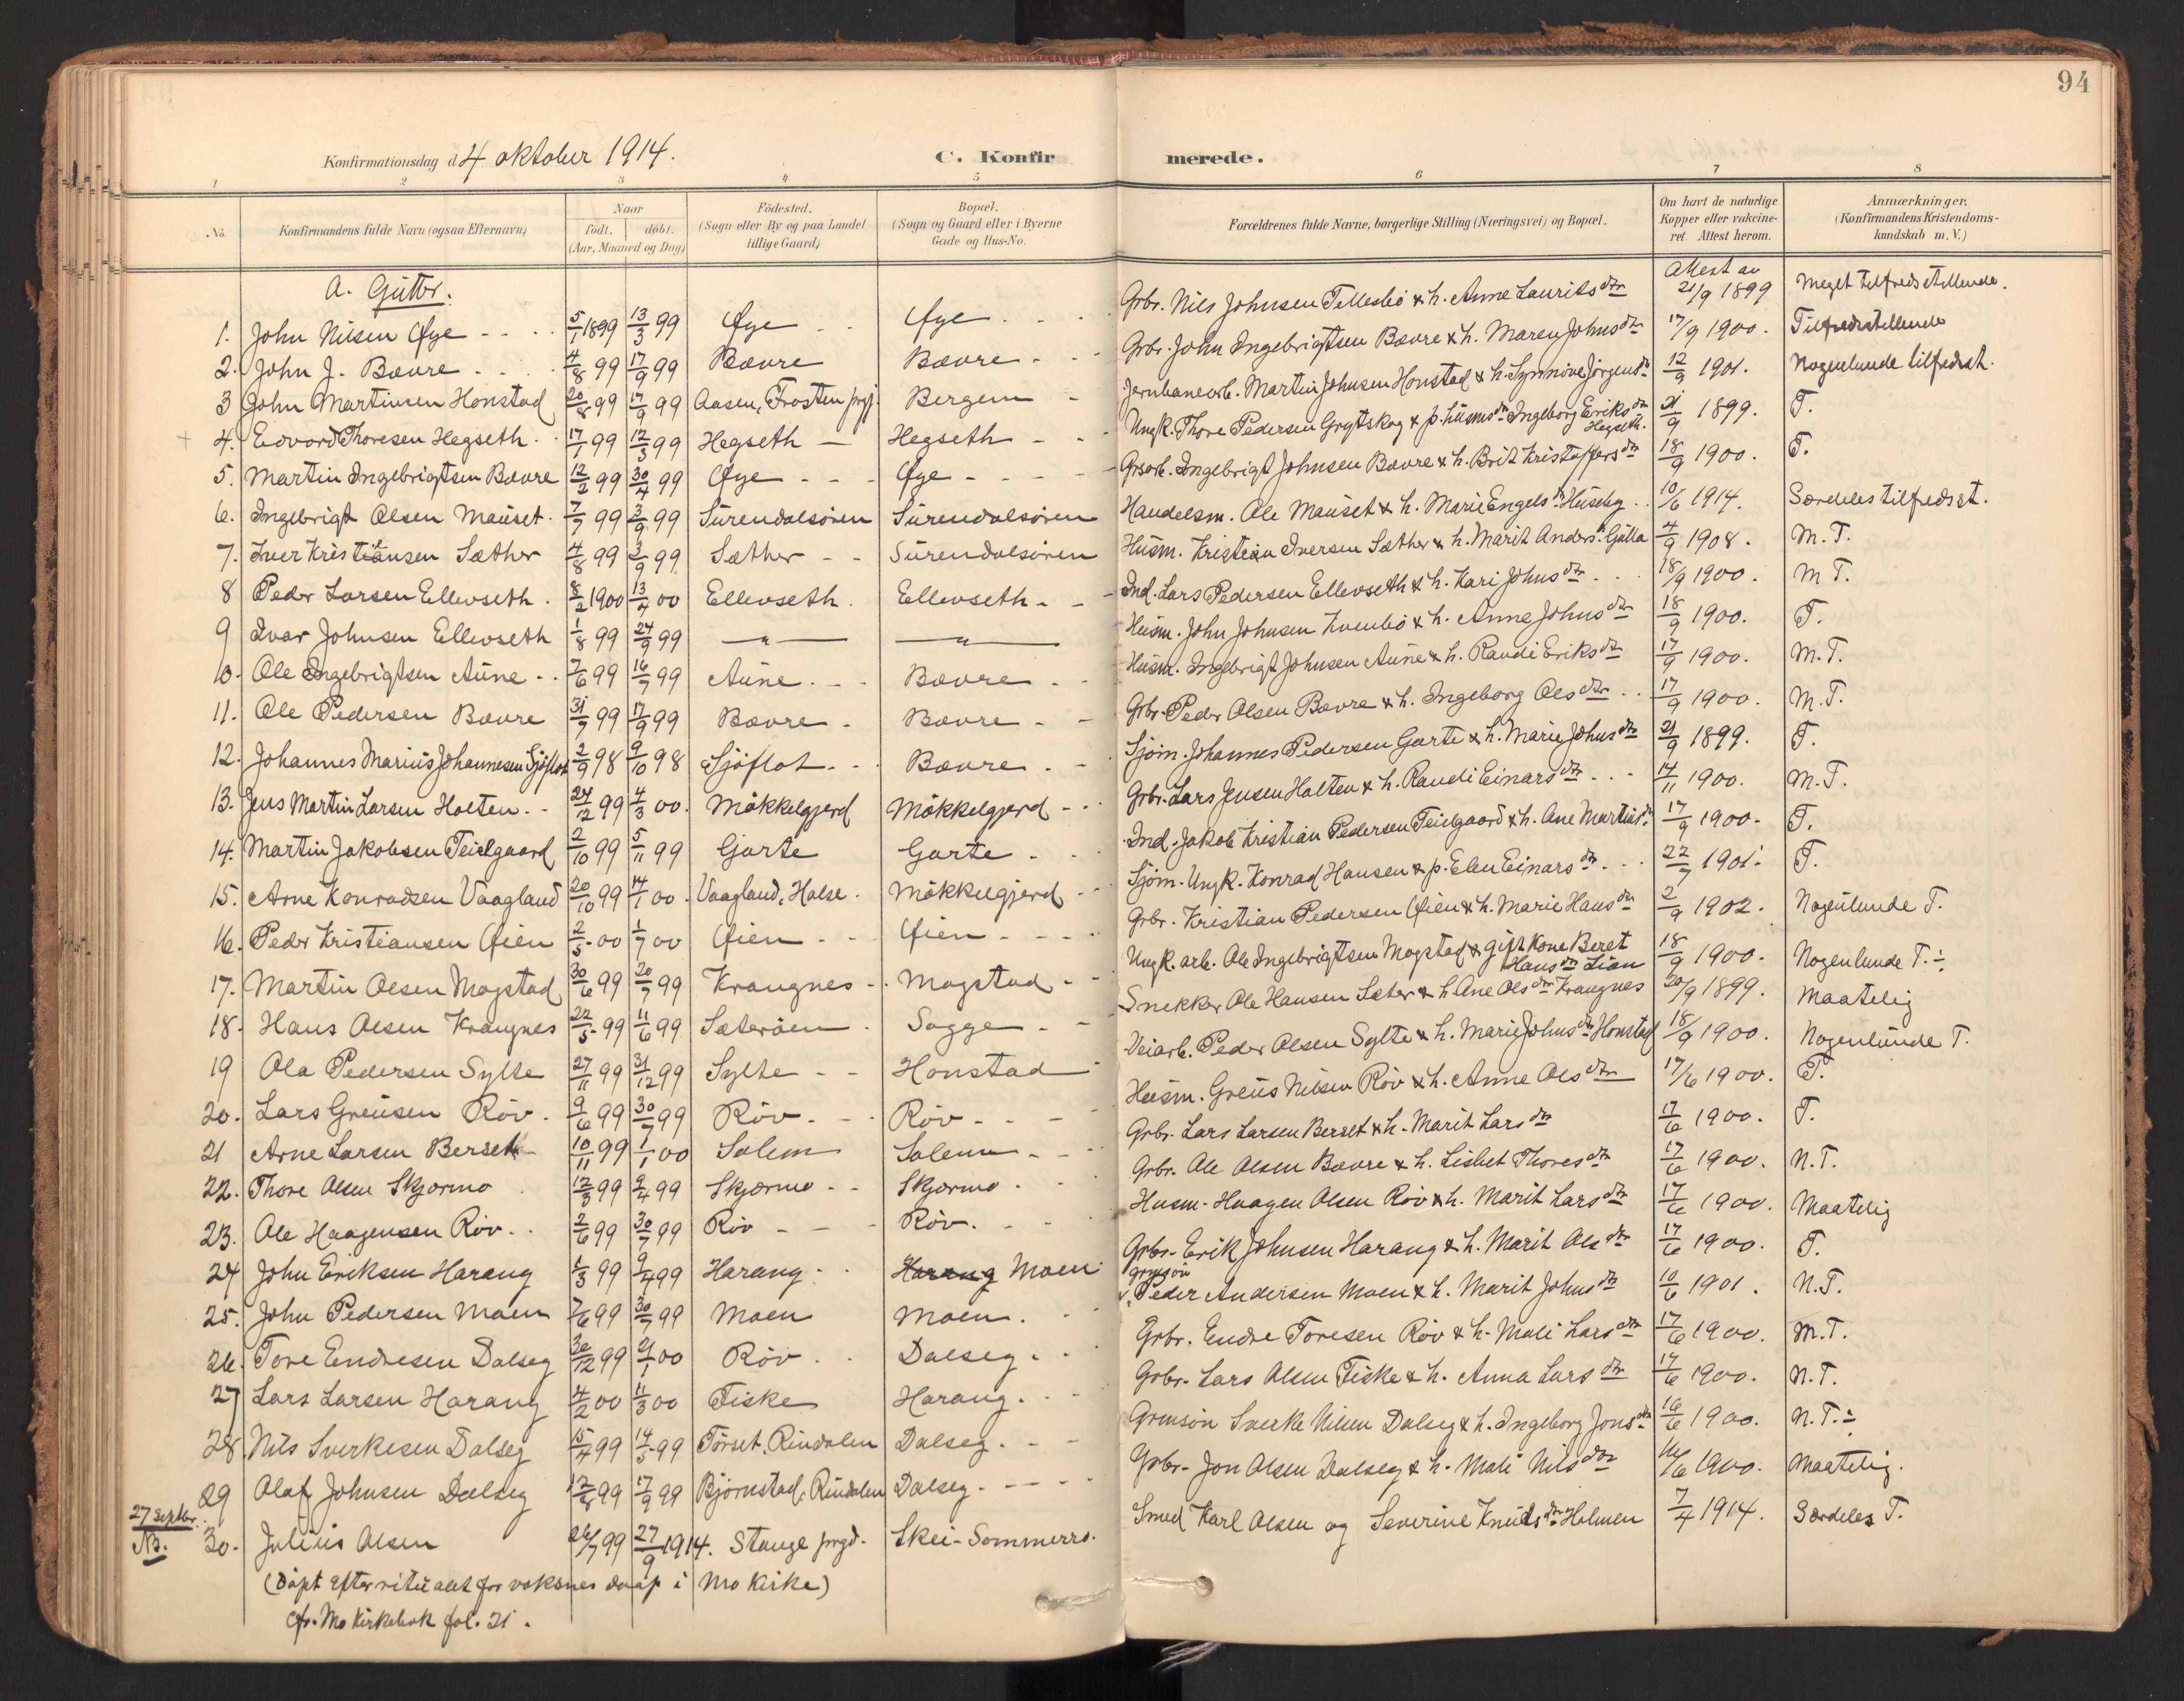 94
Konfirmationsdag d. 4 oktober 1914.
C. Konfirmerede.
1 2 3 4 5 6 7 8
No. Konfirmandens fulde Navn (ogsaa Efternavn) Naar födt. döbt. (Aar, Maaned og Dag) Födested. (Sogn eller By og paa Landet tillige Gaard) Bopæl. (Sogn og Gaard eller i Byerne Gade og Hus-No. Forældrenes fulde Navne, borgerlige Stilling (Næringsvei) og Bopæl. Om havt de naturlige Kopper eller vakcineret. Attest herom. Anmærkninger. (Konfirmandens Kristendomskundskab m. V.)
A. Gutter.
1. John Nilsen Øye 5/1 1899 13/3 99 Øye Øye Grbr. Nils Johnsen Tellesbö & h. Anne Laurits dtr Attest av 21/9 1899 Meget tilfredsstillende.
2. John J. Bævre 4/8 99 17/9 99 Bævre Bævre Grbr. John Ingebrigtsen Bævre & h. Maren Johns dtr 17/9 1900. Tilfredsstillende
3 John Martinsen Honstad 20/8 99 17/9 99 Aasen, Frosten prgj. Bergem Jernbanearb. Martin Johnsen Honstad & h. Synnöve Jörgensd. 12/9 1901. Nogenlunde tilfredsst.
4. Edvard Thoresen Hegseth 17/1 99 12/3 99 Hegseth Hegseth Ungk. Thore Pedersen Grytskog & p. husmdtr Ingeborg Eriks dtr Hegseth. 21/9 1899. T.
5. Martin Ingebrigtsen Bævre 12/2 99 30/4 99 Øye Øye Grsarb. Ingebrigt Johnsen Bævre & h. Brit Kristoffers dtr 18/9 1900. T.
6. Ingebrigt Olsen Mauset 7/7 99 3/9 99 Surendalsören Surendalsören Handelsm. Ole Mauset & h. Marie Engelsdtr Huseby 10/6 1914. Særdeles tilfredsst.
7. Iver Kristiansen Sæther 4/8 99 3/9 99 Sæther Surendalsören Husm. Kristian Iversen Sæther & h. Marit Andersd. Gulla 4/9 1908. M.T.
8 Peder Larsen Ellevseth 8/2 1900 13/4 00 Ellevseth. Ellevseth Ind. Lars Pedersen Ellevseth & h. Kari Johns dtr 18/9 1900. M T.
9 Ivar Johnsen Ellevseth 1/8 99 24/9 99 — " — — " — Husm. John Johnsen Kvenbö & h. Anne Johns dtr 18/9 1900. T.
10. Ole Ingebrigtsen Aune 7/6 99 16/7 99 Aune Bævre Husm. Ingebrigt Johnsen Aune & h. Randi Eriks dtr 17/9 1900. M.T.
11. Ole Pedersen Bævre 31/7 99 17/9 99 Bævre Bævre Grbr. Peder Olsen Bævre & h. Ingeborg Ols dtr 17/9 1900. M.T.
12. Johannes Marius Johannesen Sjöflot 2/9 98 9/10 98 Sjöflot Bævre Sjöm. Johannes Pedersen Garte & h. Marie Johns dtr 21/9 1899. T.
13. Jens Martin Larsen Holten 24/12 99 4/3 00. Mökkelgjerd Mökkelgjerd Grbr. Lars Jensen Halten & h. Randi Einars dtr 14/11 1900. M.T.
14. Martin Jakobsen Teielgaard 2/10 99 5/11 99 Garte Garte Ind. Jakob Kristian Pedersen Teielgaard & h. Ane Martinsd. 17/9 1900. T.
15. Arne Konradsen Vaagland 20/10 99 14/1 00. Vaagland, Halse. Mökkelgjerd Sjöm. Ungk. Konrad Hansen & p. Elen Einars dtr 22/7 1901. T.
16. Peder Kristiansen Øien 2/5 00 1/7 00 Øien Øien Grbr. Kristian Pedersen Øien & h. Marie Hans dtr 2/9 1902. Nogenlunde T.
17. Martin Olsen Mogstad 30/6 99 20/7 99 Krangnes Mogstad Ungk. arb. Ole Ingebrigtsen Mogstad & gift Kone Beret Hans dtr Lian 18/9 1900. Nogenlunde T. ÷
18. Hans Olsen Krangnes 22/5 99 11/6 99 Sæteröen Sogge Snekker Ole Hansen Sæter & h. Ane Olsdtr Krangnes 20/9 1899. Maatelig
19 Ola Pedersen Sylte 27/11 99 31/12 99 Sylte Honstad Veiarb. Peder Olsen Sylte & h. Marie Johnsdtr Honstad 18/9 1900. Nogenlunde T.
20. Lars Greusen Röv. 9/6 99 30/7 99 Röv Röv Husm. Greus Nilsen Röv & h. Anne Ols dtr 17/6 1900. T.
21 Arne Larsen Berset 10/11 99 1/1 00 Solem Solem Grbr. Lars Larsen Berset & h. Marit Lars dtr 17/6 1900. T.
22. Thore Olsen Skjermo 12/3 99 9/4 99 Skjermo Skjermo Grbr. Ole Olsen Bævre & h. Lisbet Thores dtr 17/6 1900. N.T.
23. Ole Haagensen Röv 2/6 99 30/7 99 Röv Röv Husm. Haagen Olsen Röv & h. Marit Lars dtr 17/6 1900. Maatelig
24 John Eriksen Harang 1/3 99 9/4 99 Harang Harang Moen Grbr. Erik Johnsen Harang & h. Marit Ols dtr 17/6 1900. T.
25. John Pedersen Moen 7/6 99 30/7 99 Moen Moen. Grmsön Peder Andersen Moen & h. Marit Johns dtr 10/6 1901. N.T.
26. Tore Endresen Dalseg 30/12 99 21/1 00 Röv Dalseg Grbr. Endre Toresen Röv & h. Mali Lars dtr 17/6 1900. M.T.
27 Lars Larsen Harang 4/2 00 11/3 00 Fiske Harang. Grbr. Lars Olsen Fiske & h. Anna Lars dtr 17/6 1900. N.T.
28. Nils Sverkesen Dalseg 15/4 99 14/5 99 Törset, Rindalen Dalseg. Grmsön Sverke Nilsen Dalseg & h. Ingeborg Jonsdtr 16/6 1900. N.T. ÷
29 Olaf Johnsen Dalseg 12/8 99 17/9 99 Björnstad, Rindalen Dalseg. Grbr. Jon Olsen Dalseg & h. Mali Nils dtr 16/6 1900. Maatelig.
27 septbr. NB. 30. Julius Olsen 26/7 99 27/9 1914. Stange prgd. Skei-Sommerro. Smed Karl Olsen og Severine Knutsdtr Holmen 7/4 1914. Særdeles T.
(Döpt efter ritualet for voksnes daap i Mo Kirke)
cfr. Mo Kirkebok fol. 21.